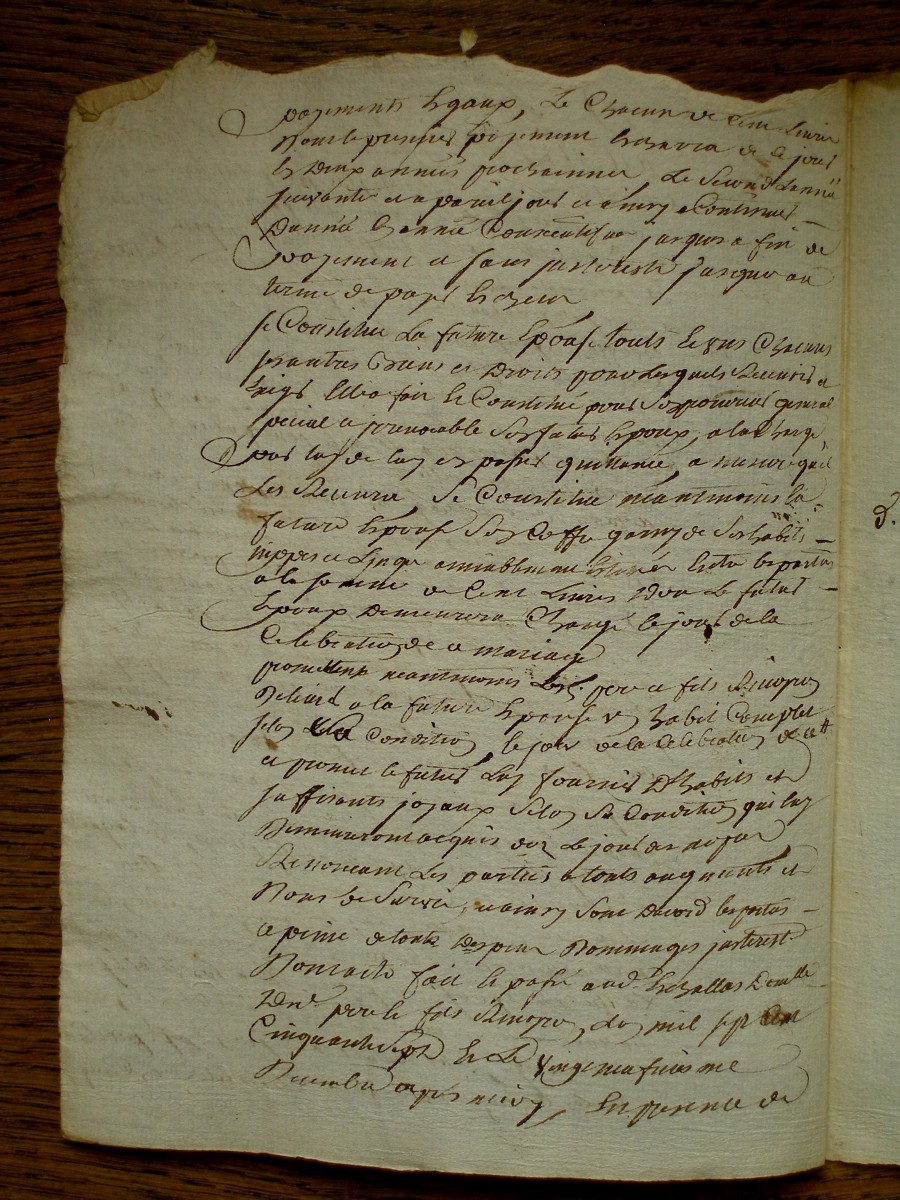 payements Egaux, Le Chacun de Cent Livres
dont le premier payement Echerra de ce jour
En deux années prochaines, Le second Lannée
suivante et a pareil jour et ainsy a Continuer
Dannée En année Consecutifve jusques a fin de
payement et sans jnterests jusques au
terme de payes Echeus
se Constitue La future Epouse touts Et uns Chacuns
ses autres Biens et Droits pour Lesquels Recouvrer et
Exiger Elle a fait Et Constitué pour Son procureur general
special et jrrevocable Son futur Epoux, a la charge
par luy de luy en passer quittance, a mesure quil
Les Recevra Se Constitue neantmoins la
future Epouse Son Coffre garny de Ses habits
nippes et Linge amiablement Estimés Entre les parties
a la somme de Cent Livres dont Le futur
Epoux Demeurera Chargé le jour de la
Celebration de ce mariage
promettent neantmoins Lesd. pere et fils
a la future Epouse un habit Complet
selon Sa Condition, le jour de la Celebration de
et promet le futur Luy fournir D'habits et
suffisants joyaux selon Sa Condition qui luy
Demeureront acquis des Le jour des nopces
Renonceant Les parties a touts augments et
Dons de Survie, et ainsy Sont Dacord les parties
a peine de touts Despens Dommages jnterests
Dont acte fait Et passé aud. Domille
pere Et fils Lan mil sept Cent
Cinquante Sept Et Le vingt neufvieme
Decembre apres midy, En presence de
2.